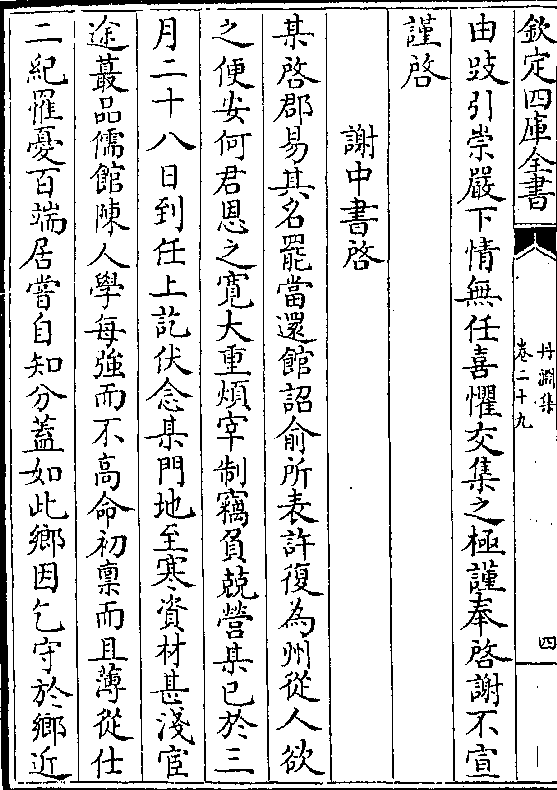 欽定四庫全書
丹淵集
卷二十九
四
由跂引崇嚴下情無任喜懼交集之極謹奉啓謝不宣
謹啓
謝中書啓
某啓郡易其名罷當還館詔俞所表許復為州從人欲
之便安何君恩之寛大重煩宰制竊負兢營某已於三
月二十八日到任上訖伏念某門地至寒資材甚淺宦
途蕞品儒館陳人學每強而不高命初禀而且薄從仕
二紀罹憂百端居嘗自知分蓋如此鄉因乞守於鄉近